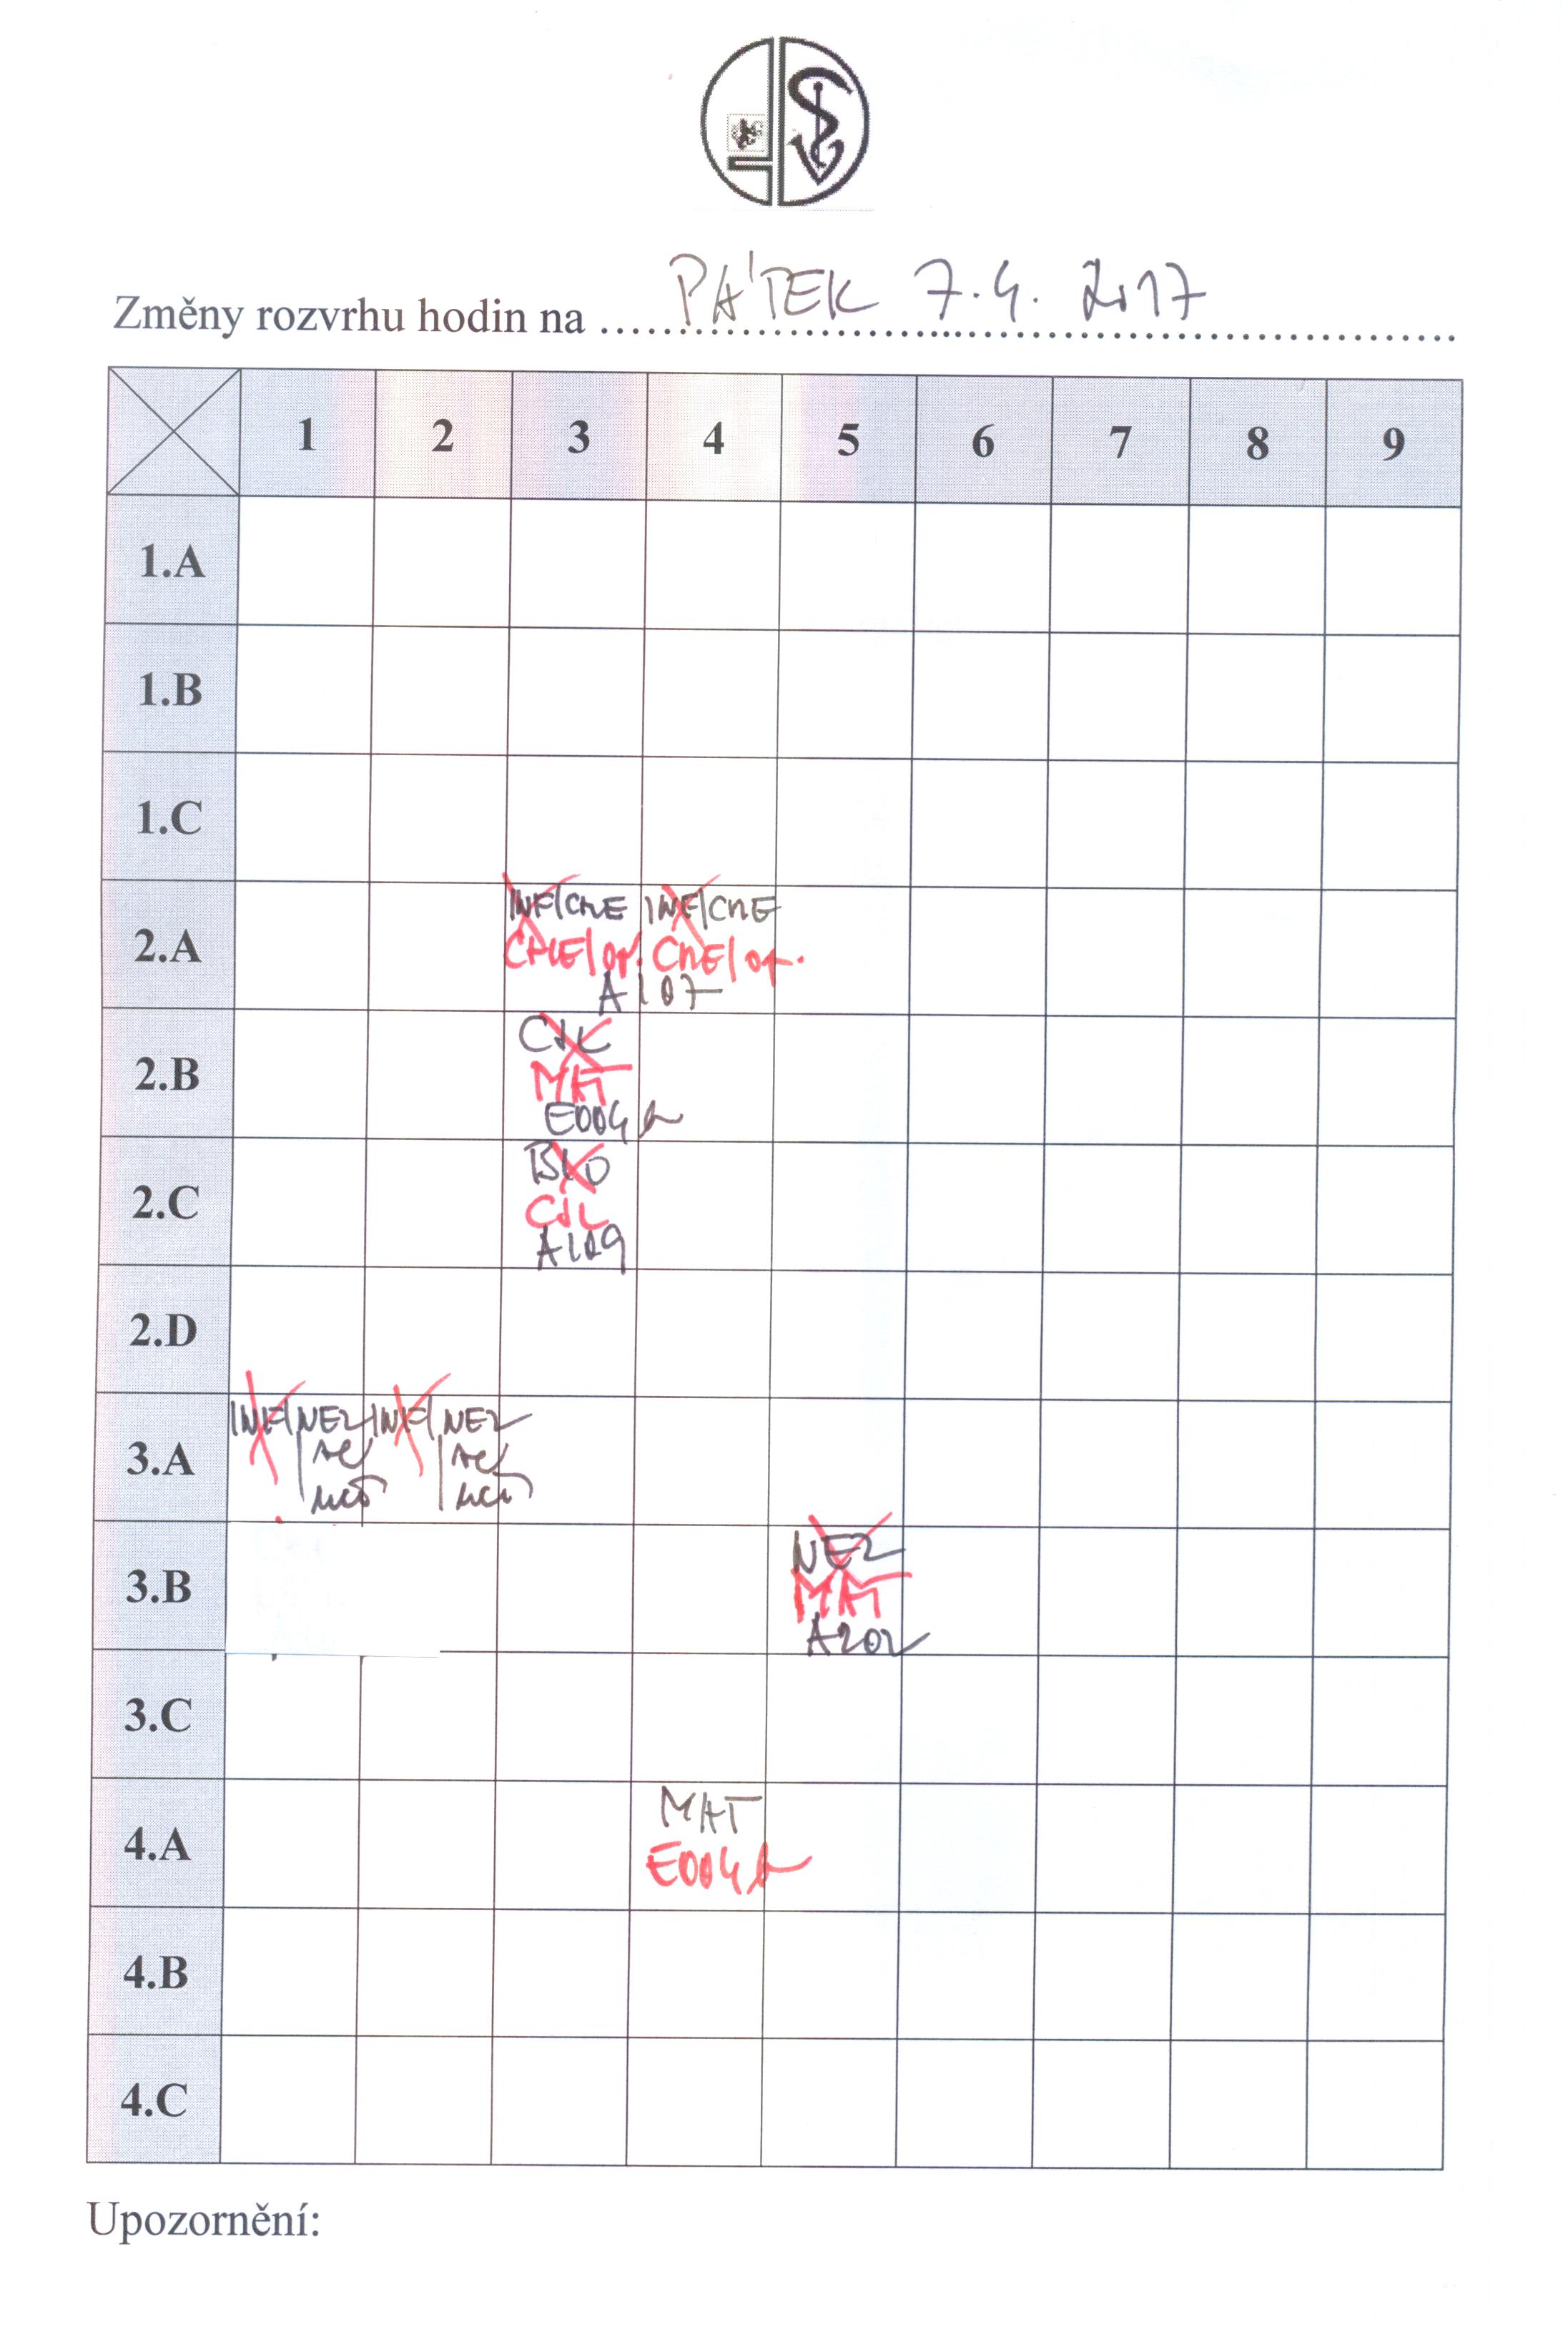 Změny rozvrhu hodin na PÁTEK 7.4. 2017
1 2 3 4 5 6 7 8 9
1.A
1.B
1.C
2.A
INF/CHE INF/CHE
CHE/op. CHE/op.
A107
2.B
CJL
MAT
E004b
2.C
BLO
CJL
A109
2.D
3.A
INF/NEZ INF/NEZ
3.B
NEZ
MAT
A202
3.C
4.A
MAT
E004b
4.B
4.C
Upozornění: